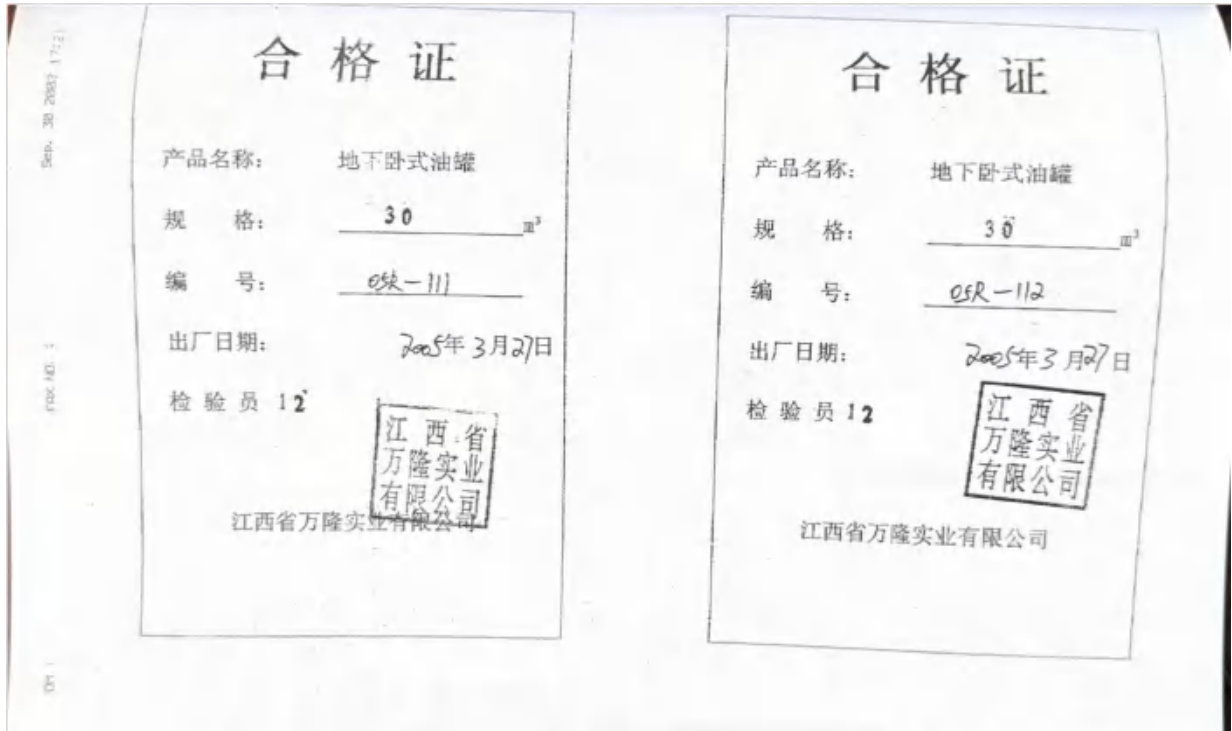 合格证
产品名称: 地下卧式油罐
规 格: 30 m³
编 号: 05R-111
出厂日期: 2005年3月27日
检验员 12
江西省
万隆实业
有限公司
江西省万隆实业有限公司
合格证
产品名称: 地下卧式油罐
规 格: 30 m³
编 号: 05R-112
出厂日期: 2005年3月27日
检验员 12
江西省
万隆实业
有限公司
江西省万隆实业有限公司